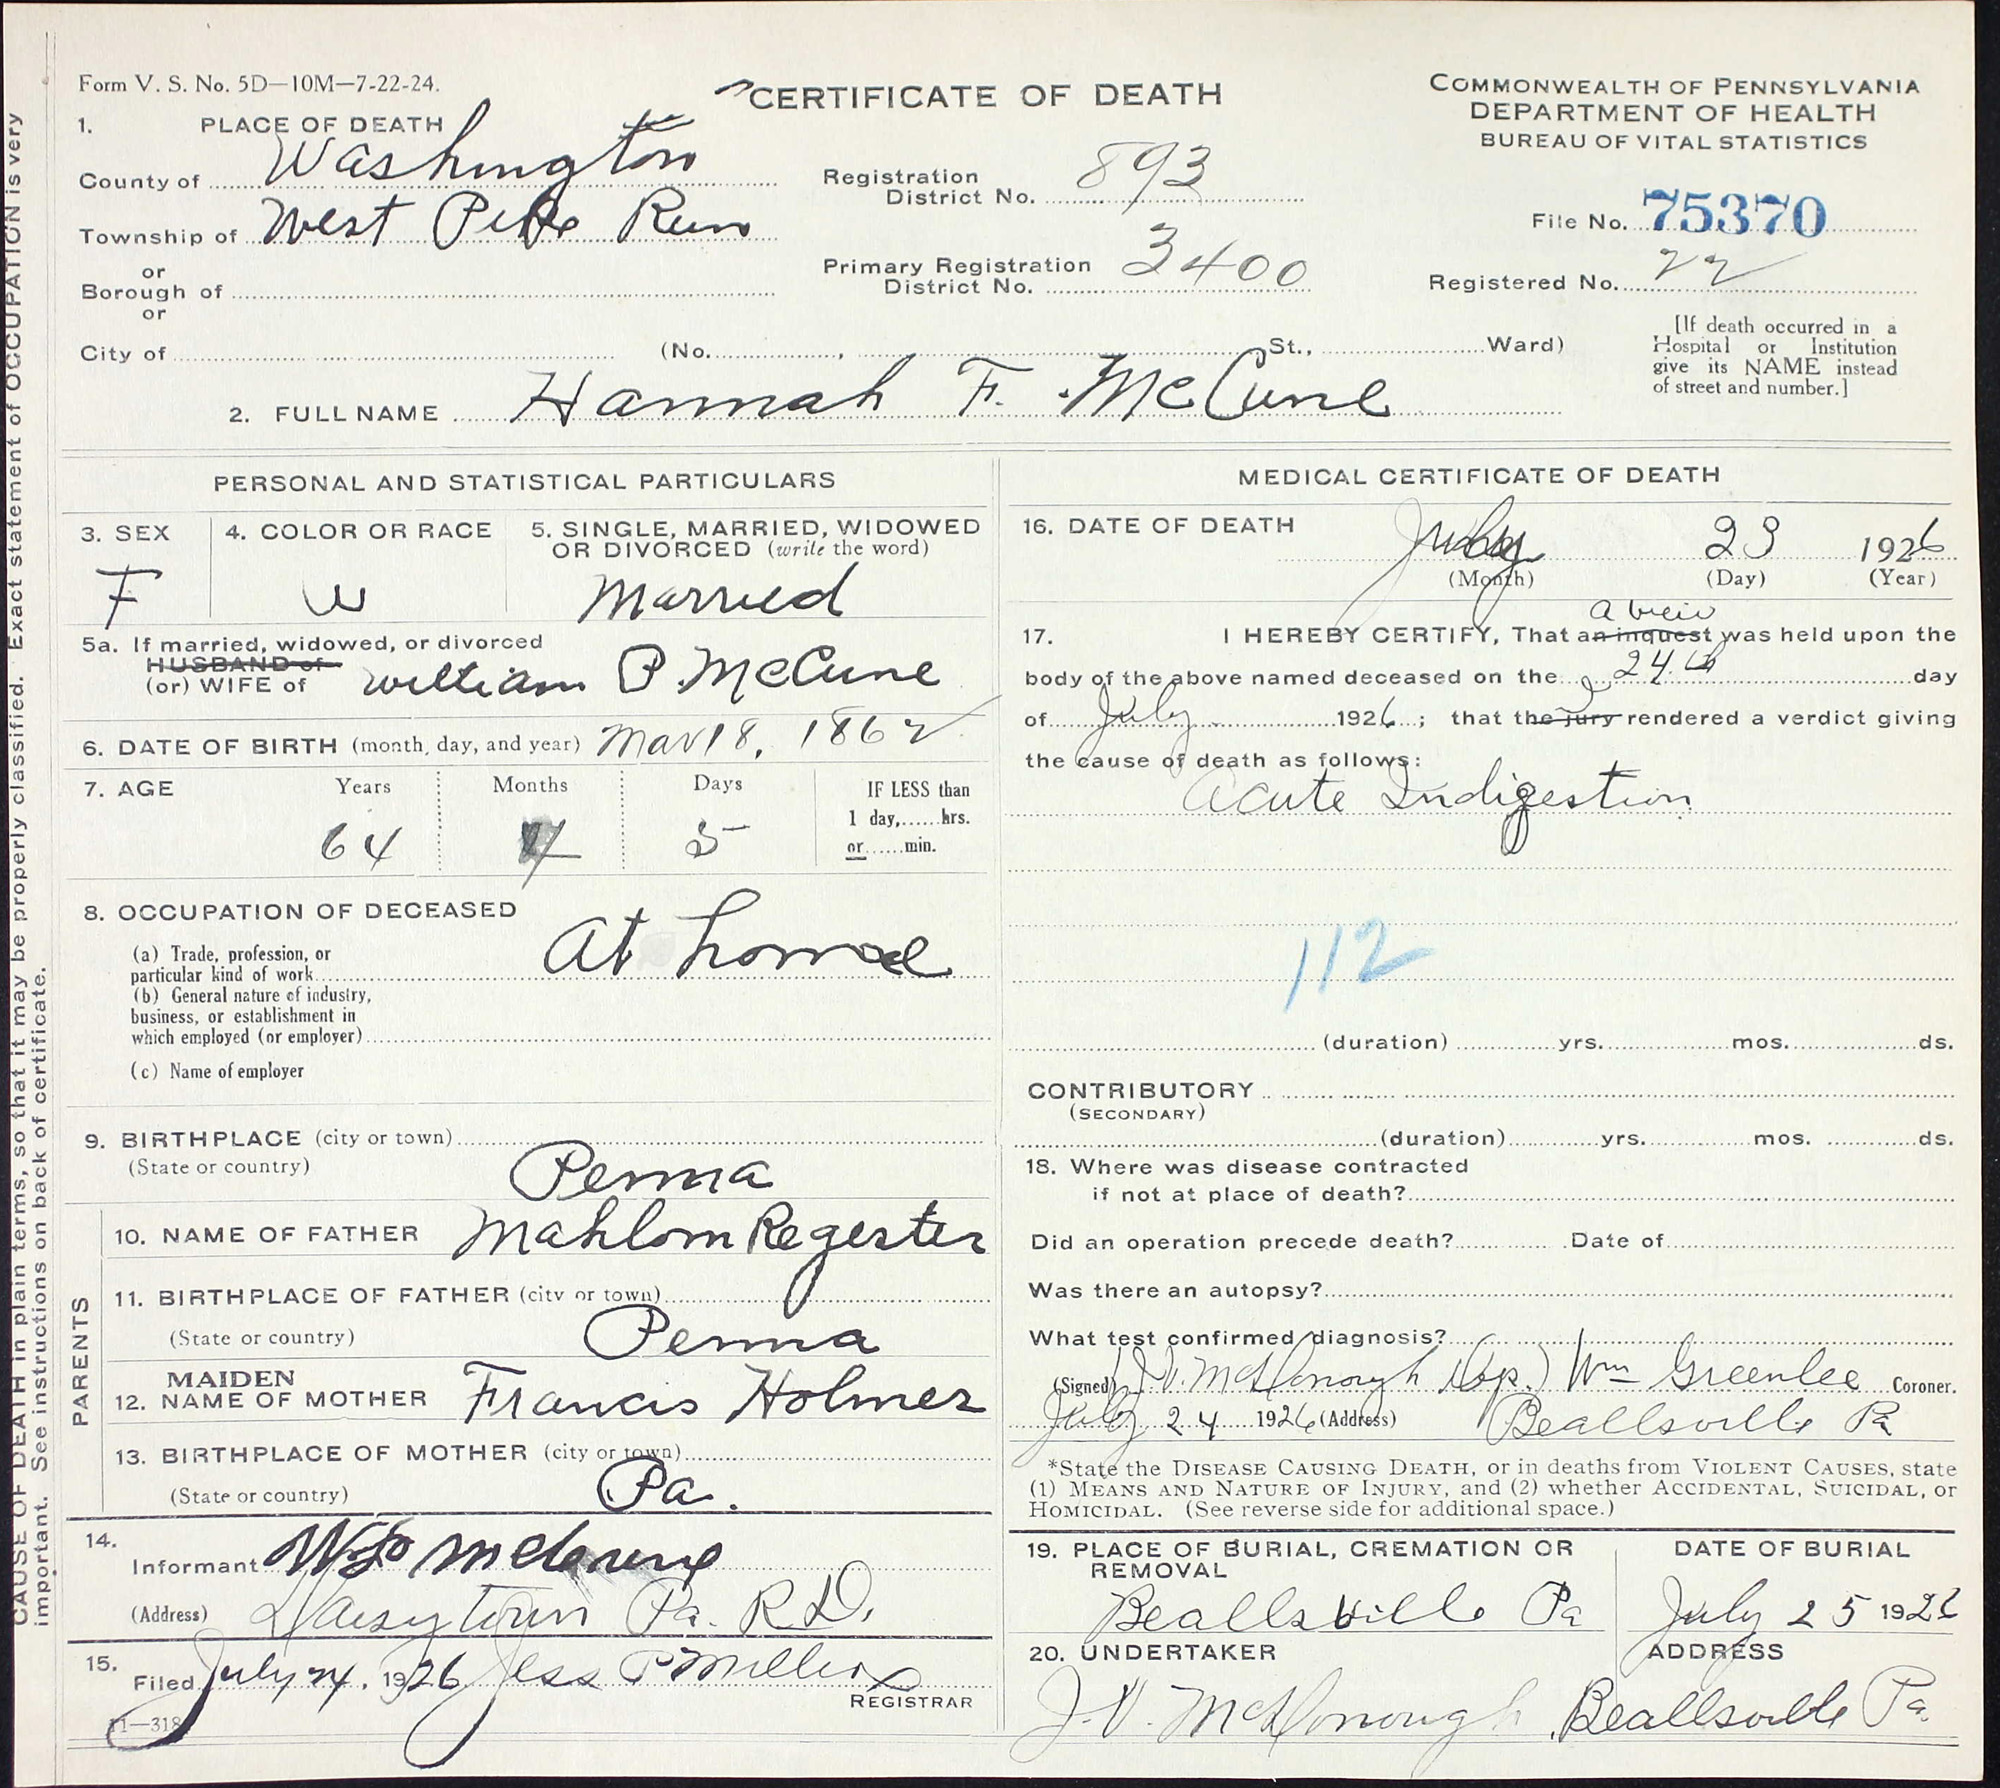 Form V. S. No. 5D—10M—7-22-24.
CERTIFICATE OF DEATH
COMMONWEALTH OF PENNSYLVANIA
DEPARTMENT OF HEALTH
BUREAU OF VITAL STATISTICS
1. PLACE OF DEATH
County of Washington
Township of West Pike Run
or
Borough of
or
City of (No. , St., Ward)
Registration District No. 893
Primary Registration District No. 3400
File No. 75370
Registered No. 22
[If death occurred in a
Hospital or Institution
give its NAME instead
of street and number.]
2. FULL NAME Hannah F. McCune
PERSONAL AND STATISTICAL PARTICULARS
3. SEX
F
4. COLOR OR RACE
W
5. SINGLE, MARRIED, WIDOWED
OR DIVORCED (write the word)
Married
5a. If married, widowed, or divorced
HUSBAND of
(or) WIFE of William P. McCune
6. DATE OF BIRTH (month, day, and year) Mar 18, 1862
7. AGE Years Months Days
64 4 5
IF LESS than
1 day,......hrs.
or......min.
8. OCCUPATION OF DECEASED
(a) Trade, profession, or
particular kind of work At home
(b) General nature of industry,
business, or establishment in
which employed (or employer)
(c) Name of employer
9. BIRTHPLACE (city or town)
(State or country) Penna
PARENTS
10. NAME OF FATHER Mahlon Regester
11. BIRTHPLACE OF FATHER (city or town)
(State or country) Penna
12. MAIDEN NAME OF MOTHER Francis Holmes
13. BIRTHPLACE OF MOTHER (city or town)
(State or country) Pa.
14.
Informant W P McCune
(Address) Daisytown Pa. R.D.
15.
Filed July 24, 1926 Jess P Miller
REGISTRAR
11—318
MEDICAL CERTIFICATE OF DEATH
16. DATE OF DEATH July 23 1926
(Month) (Day) (Year)
a view
17. I HEREBY CERTIFY, That an inquest was held upon the
body of the above named deceased on the 24th day
of July 1926; that the jury rendered a verdict giving
the cause of death as follows:
Acute Indigestion
112
(duration) yrs. mos. ds.
CONTRIBUTORY
(SECONDARY)
(duration) yrs. mos. ds.
18. Where was disease contracted
if not at place of death?
Did an operation precede death? Date of
Was there an autopsy?
What test confirmed diagnosis?
(Signed) J.V. McDonough (Dep.) Wm Greenlee Coroner.
July 24 1926 (Address) Beallsville Pa
*State the DISEASE CAUSING DEATH, or in deaths from VIOLENT CAUSES, state
(1) MEANS AND NATURE OF INJURY, and (2) whether ACCIDENTAL, SUICIDAL, or
HOMICIDAL. (See reverse side for additional space.)
19. PLACE OF BURIAL, CREMATION OR
REMOVAL
Beallsville Pa
DATE OF BURIAL
July 25 1926
20. UNDERTAKER
J.V. McDonough
ADDRESS
Beallsville Pa.
CAUSE OF DEATH in plain terms, so that it may be properly classified. Exact statement of OCCUPATION is very
important. See instructions on back of certificate.